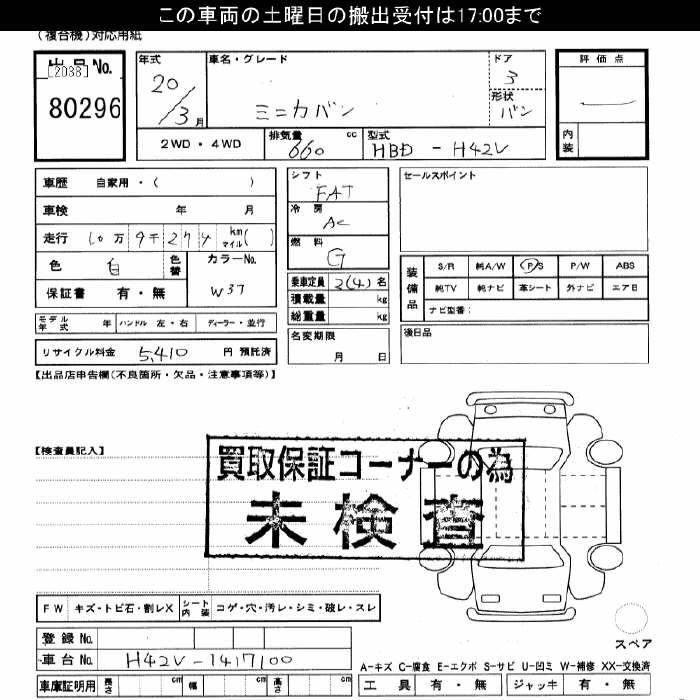 この車両の土曜日の搬出受付は17:00まで
(複合機)対応用紙
出品No.
[2038]
80296
年式
20/3月
車名・グレード
ミニカバン
ドア
3
形状
バン
評価点
内装
2WD・4WD
排気量 660 cc
型式 HBD - H42V
車歴 自家用・( )
車検 年 月
走行 10万 9千 274 km マイル( )
色 白 色替
カラーNo.
W37
保証書 有・無
モデル年式 年 ハンドル 左・右 ディーラー・並行
リサイクル料金 5,410 円 預託済
シフト
FAT
冷房
AC
燃料
G
乗車定員 2(4)名
積載量 kg
総重量 kg
名変期限
月 日
セールスポイント
装備品
S/R 純A/W P/S P/W ABS
純TV 純ナビ 革シート 外ナビ エアB
ナビ型番:
後日品
【出品店申告欄(不良箇所・欠品・注意事項等)】
【検査員記入】
買取保証コーナーの為
未検査
FW キズ・トビ石・割レX シート内装 コゲ・穴・汚レ・シミ・破レ・スレ
登録No.
車台No. H42V-1417100
車庫証明用 長さ cm 幅 cm 高さ cm
スペア
A-キズ C-腐食 E-エクボ S-サビ U-凹ミ W-補修 XX-交換済
工具 有・無 ジャッキ 有・無